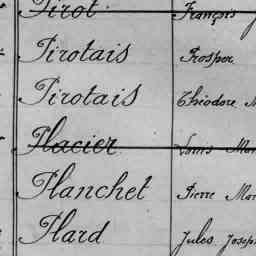 Pirot François
Pirotais Prosper
Pirotais Théodore
Placier Louis
Planchet Pierre
Plard Jules Joseph